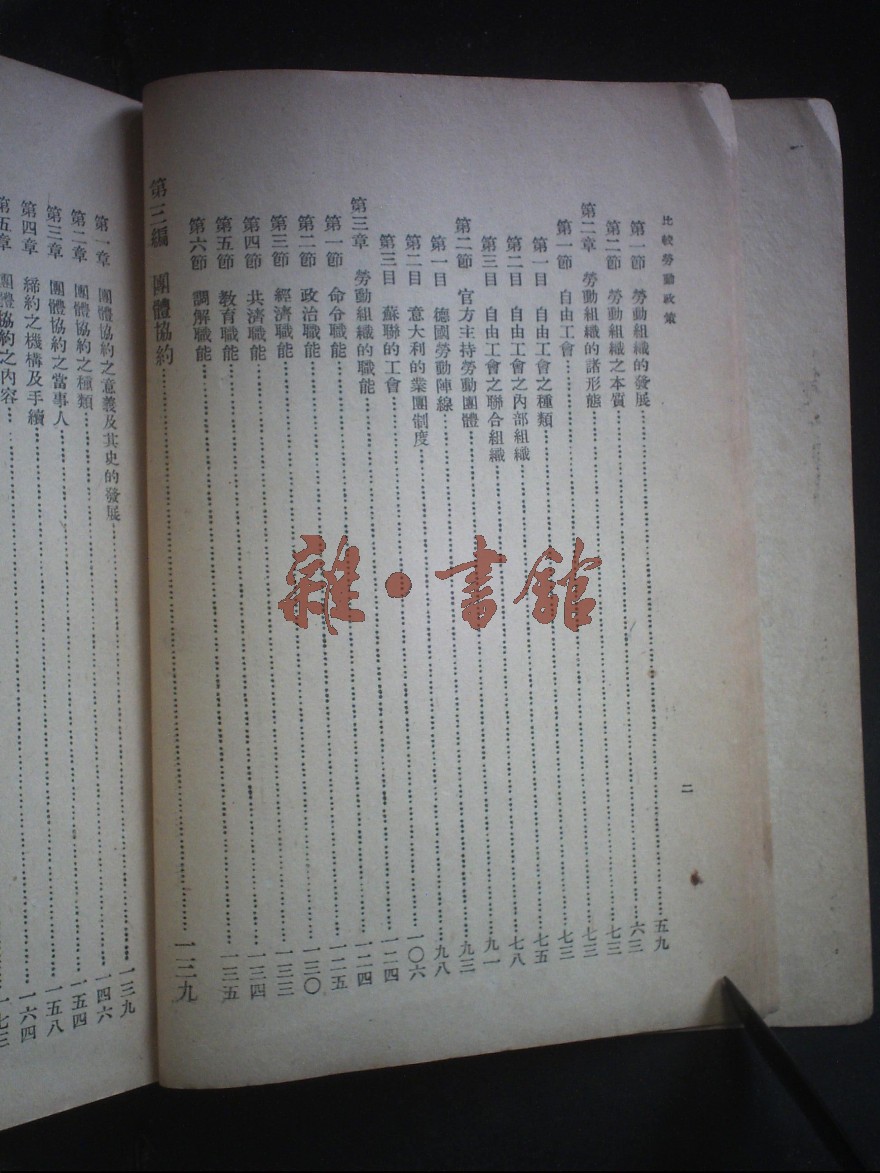 比較勞動政策
第一節　勞動組織的發展……五九
第二節　勞動組織之本質……六三
第二章　勞動組織的諸形態……七三
第一節　自由工會……七三
第一目　自由工會之種類……七五
第二目　自由工會之內部組織……七八
第三目　自由工會之聯合組織……九一
第二節　官方主持勞動團體……九三
第一目　德國勞動陣線……九八
第二目　意大利的業團制度……一〇六
第三目　蘇聯的工會……一二四
第三章　勞動組織的職能……一二四
第一節　命令職能……一二五
第二節　政治職能……一三〇
第三節　經濟職能……一三三
第四節　共濟職能……一三四
第五節　教育職能……一三五
第六節　調解職能
第三編　團體協約……一三九
二
第一章　團體協約之意義及其史的發展……一三九
第二章　團體協約之種類……一四六
第三章　團體協約之當事人……一五四
第四章　締約之機構及手續……一五八
第五章　團體協約之內容……一六四
一七三
雜·書館